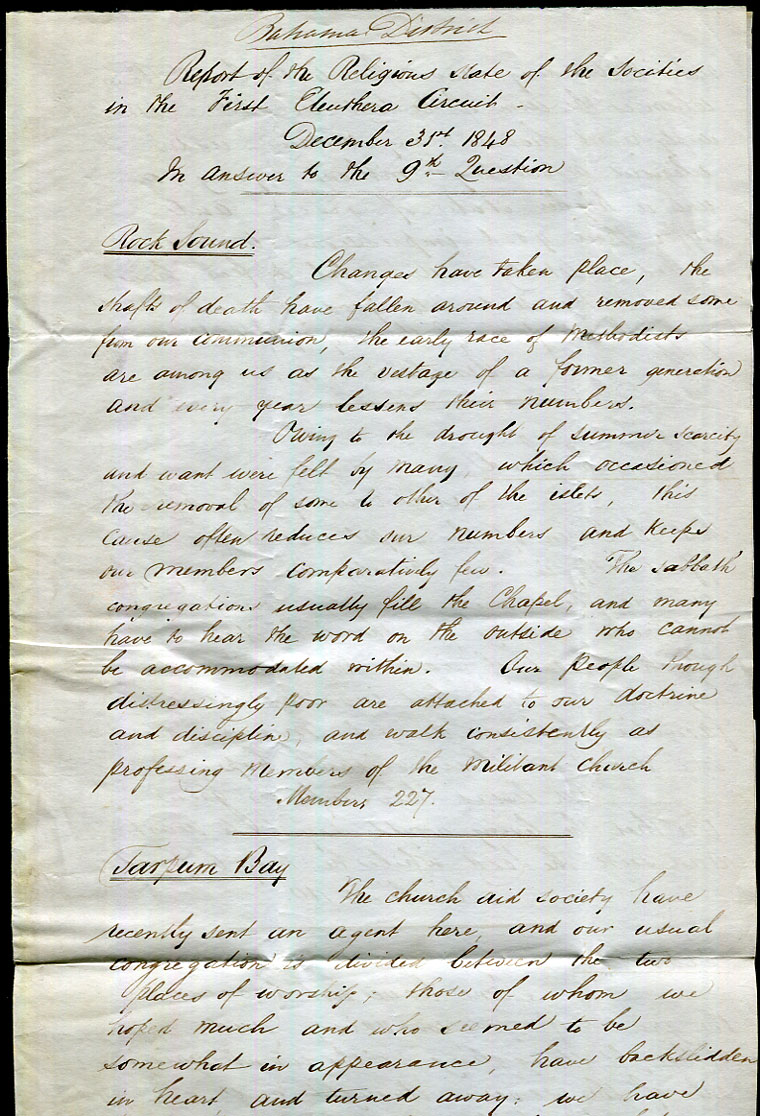 Bahama District
Report of the Religious state of the Socities
in the First Eleuthera Circuit -
December 31st. 1848
In answer to the 9th Question
Rock Sound.
Changes have taken place, the
shafts of death have fallen around and removed some
from our communion, the early race of Methodists
are among us as the vestage of a former generation
and every year lessens their numbers.
Owing to the drought of summer scarcity
and want were felt by many, which occasioned
the removal of some to other of the islets, this
cause often reduces our numbers and keeps
our members comparatively few. The sabbath
congregations usually fill the Chapel, and many
have to hear the word on the outside who cannot
be accommodated within. Our people though
distressingly poor are attached to our doctrine
and disciplin, and walk consistently as
professing Members of the Militant church
Members 227.
Tarpum Bay
The church aid society have
recently sent an agent here, and our usual
congregation is divided between the two
places of worship; those of whom we
hoped much and who seemed to be
somewhat in appearance, have backslidden
in heart, and turned away: we have